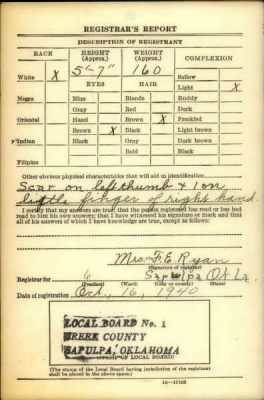 REGISTRAR'S REPORT
DESCRIPTION OF REGISTRANT
RACE HEIGHT (Approx.) WEIGHT (Approx.) COMPLEXION
5'-7" 160
White X EYES HAIR Sallow
Light X
Negro Blue Blonde Ruddy
Gray Red Dark
Oriental Hazel Brown X Freckled
Brown X Black Light brown
Indian Black Gray Dark brown
Bald Black
Filipino
Other obvious physical characteristics that will aid in identification
Scar on left thumb & 1 on
little finger of right hand.
I certify that my answers are true; that the person registered has read or has had
read to him his own answers; that I have witnessed his signature or mark and that
all of his answers of which I have knowledge are true, except as follows:
Mrs. F.E. Ryan
(Signature of registrar)
Registrar for 6 Sapulpa Okla
(Precinct) (City or county) (State)
Date of registration Oct, 16, 1940
LOCAL BOARD No. 1
CREEK COUNTY
SAPULPA, OKLAHOMA
(STAMP OF LOCAL BOARD)
(The stamp of the Local Board having jurisdiction of the registrant
shall be placed in the above space.)